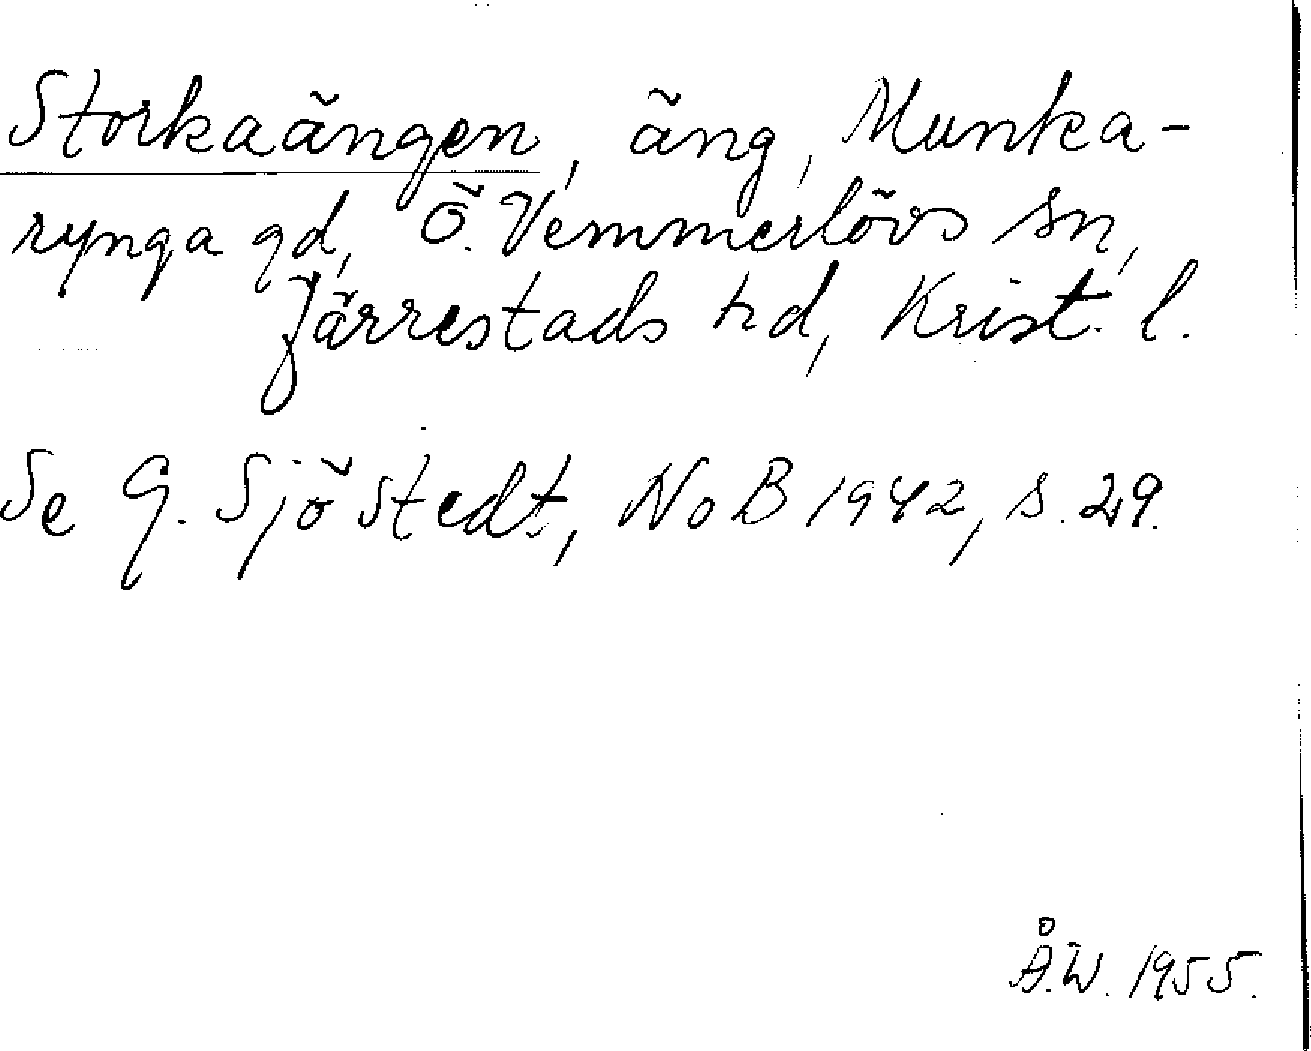 Storkaängen, äng, Munka-
rynga gd, Ö. Vemmerlövs sn,
Järrestads hd, Krist. l.
Se G. Sjöstedt, NoB 1942, s. 29.
Å.W. 1955.